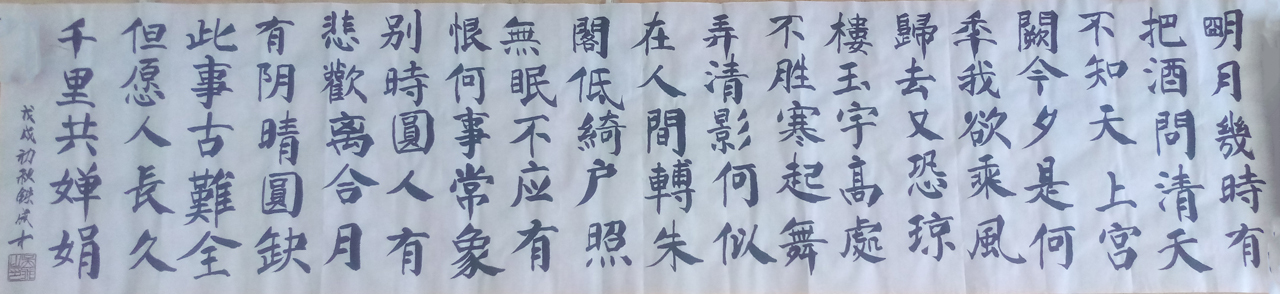 明月幾時有
把酒問清天
不知天上宮
闕今夕是何
秊我欲乘風
歸去又恐琼
樓玉宇髙處
不胜寒起舞
弄清影何似
在人間轉朱
閣低綺户照
無眠不应有
恨何事常象
别時圓人有
悲歡离合月
有阴晴圓缺
此事古難全
但愿人長久
千里共婵娟
戊戌初秋